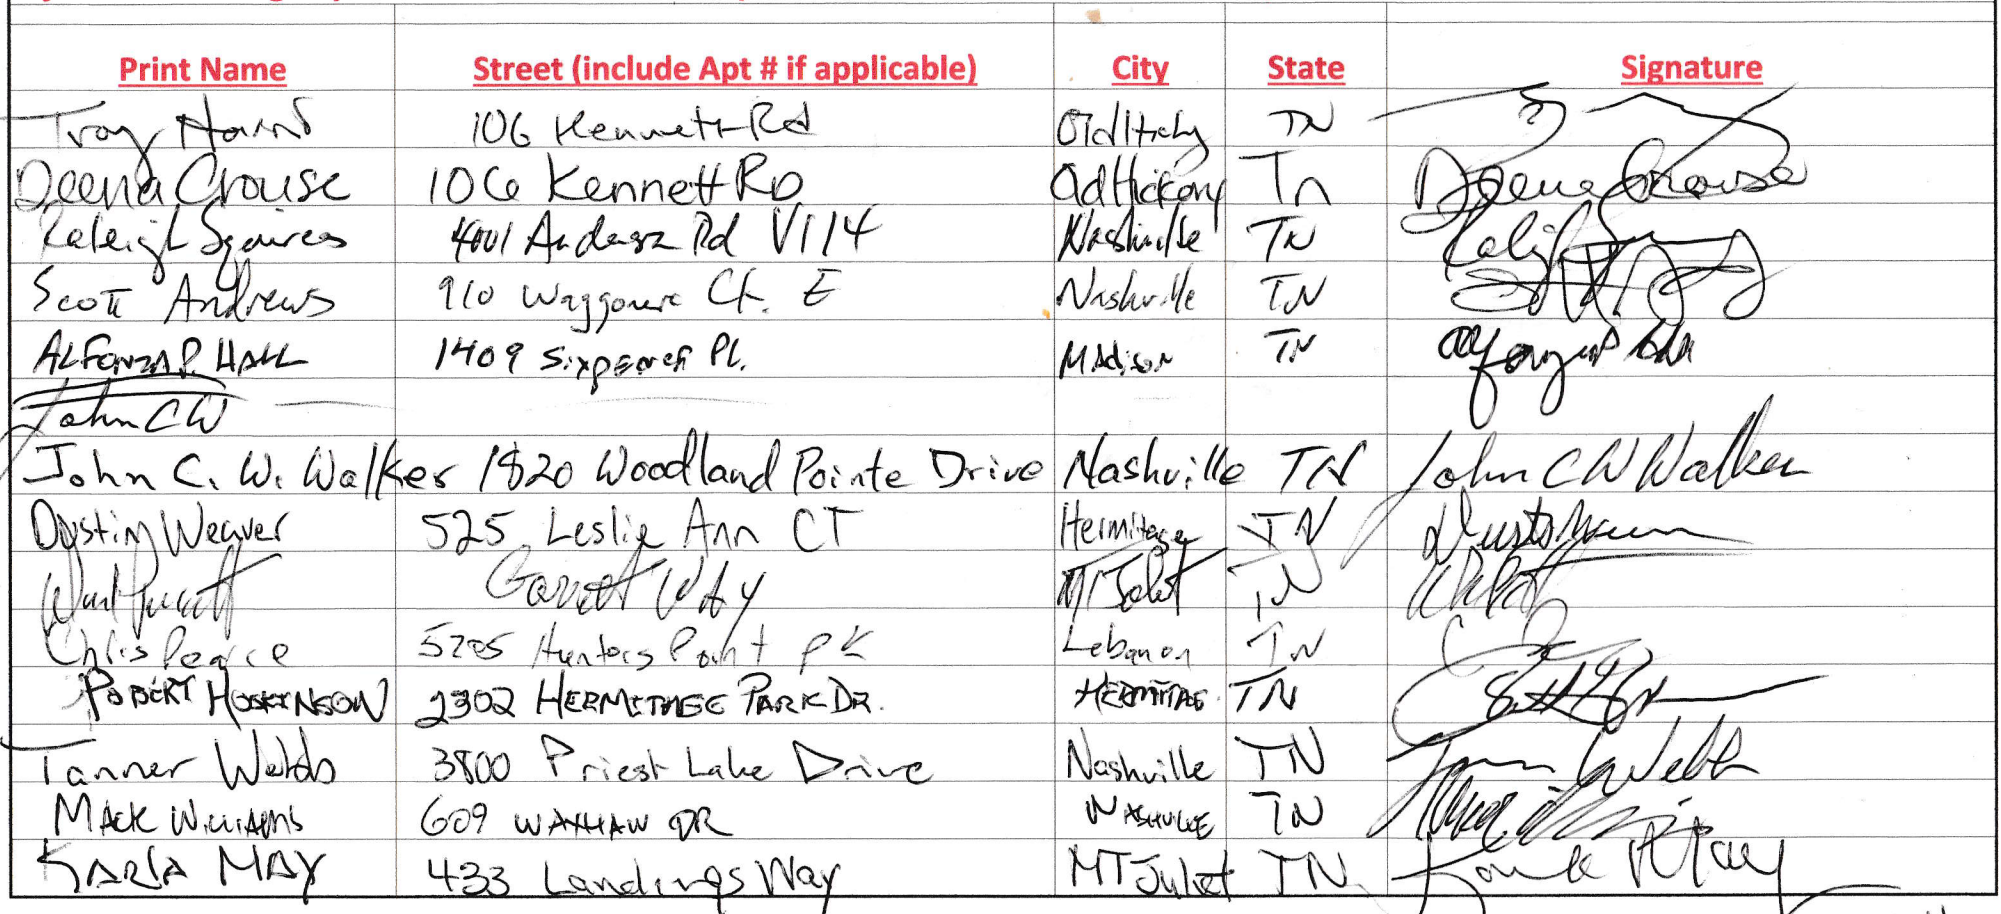 Print Name Street (include Apt # if applicable) City State Signature
Troy 106 Kennett Rd Old Hickory TN
Deena Crouse 106 Kennett RD Old Hickory Tn Deena Crouse
Raleigh Squires 4001 Anderson Rd V114 Nashville TN
Scott Andrews 910 Waggoner Ct. E Nashville TN
ALFONZA P. HALL 1409 Sixpence PL. MAdison TN
John C W
John C. W. Walker 1820 Woodland Pointe Drive Nashville TN John C W Walker
Dustin Weaver 525 Leslie Ann CT Hermitage TN
Garrett WAy MT Juliet TN
Chris Pearce Hunters Point PK Lebanon TN
ROBERT HOSKINSON 2302 HERMITAGE PARK DR. HERMITAGE TN
Tanner Webb 3800 Priest Lake Drive Nashville TN Tanner Webb
MACK WILLIAMS 609 WAXHAW DR NASHVILLE TN
KARLA MAY 433 Landings Way MT Juliet TN Karla May